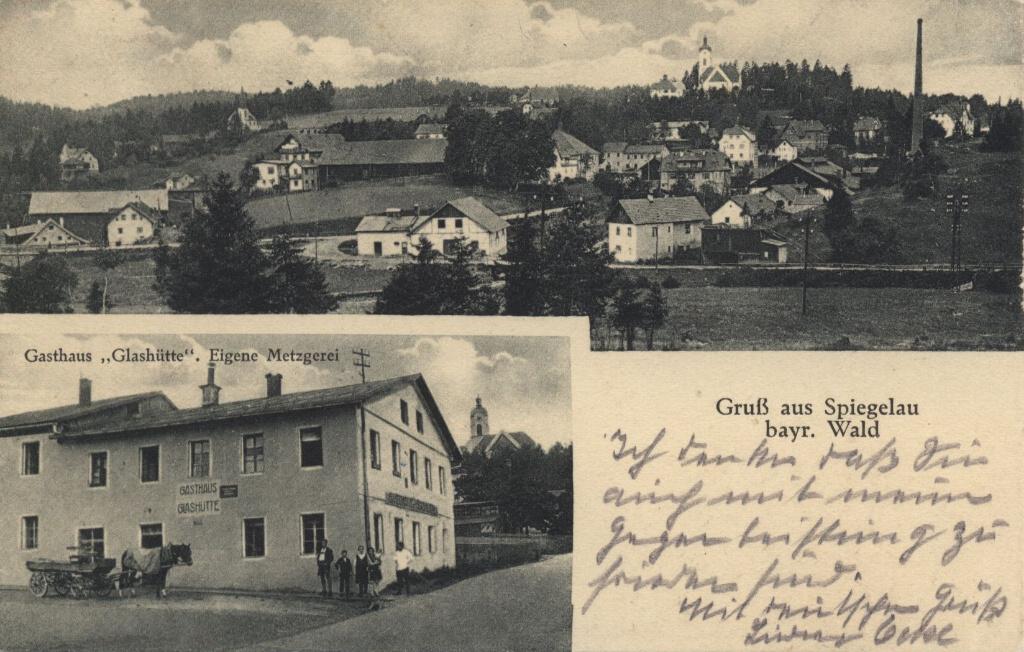 Gasthaus „Glashütte“. Eigene Metzgerei
GASTHAUS
GLASHÜTTE
Gruß aus Spiegelau
bayr. Wald
Ich denke daß Sie
auch mit meiner
Gegenleistung zu
frieden sind.
Mit deutschen Gruß